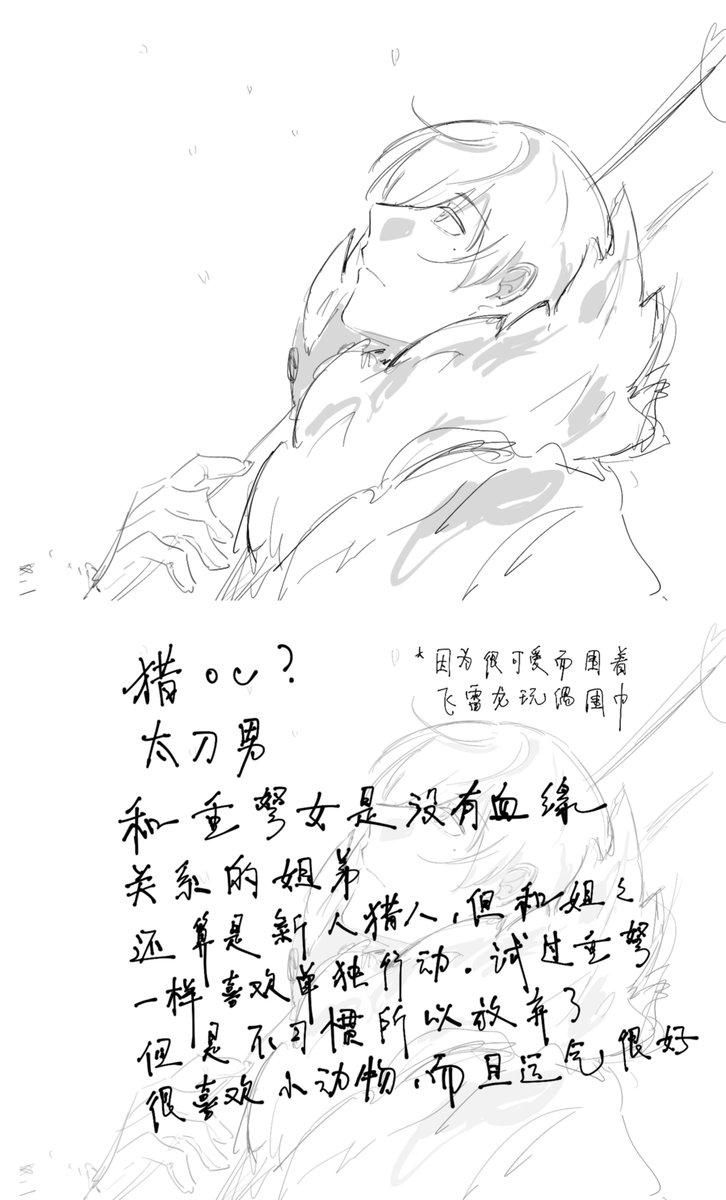 猎oc？
*因为很可爱而围着
飞雷龙玩偶围巾
太刀男
和重弩女是没有血缘
关系的姐弟
还算是新人猎人，但和姐々
一样喜欢单独行动。试过重弩
但是不习惯所以放弃了
很喜欢小动物，而且运气很好